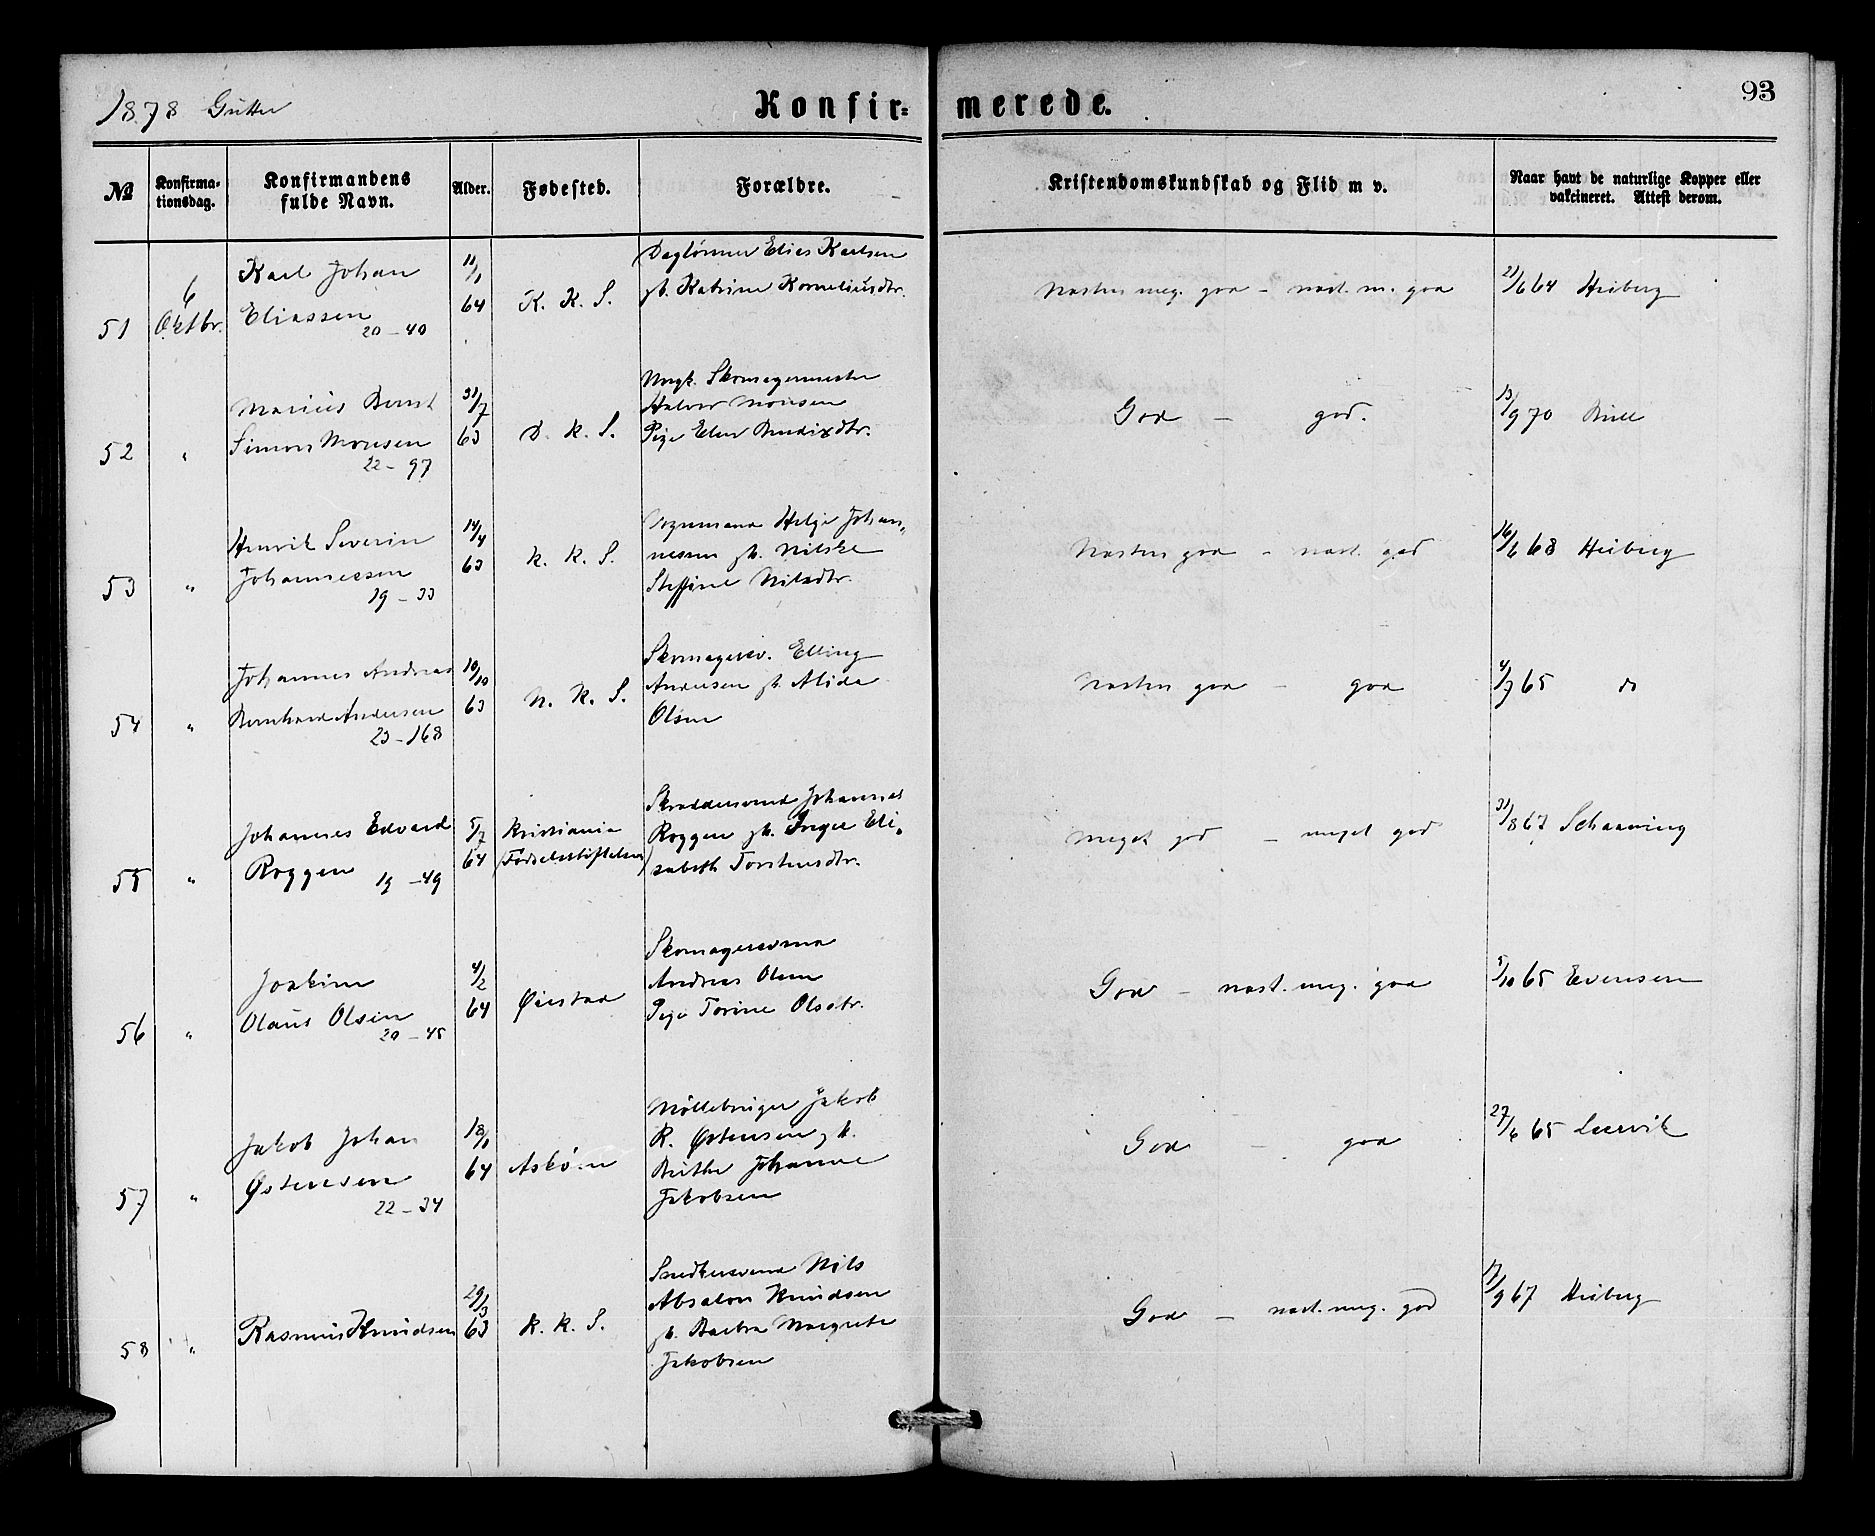 1878 Gutter
Konfir=
merede.
93
№
Konfirma-
tionsdag.
Konfirmandens
fulde Navn.
Alder.
Fødested.
Forældre.
Kristendomskundskab og Flid m v.
Naar havt de naturlige Kopper eller
vakcineret. Attest derom.
51
6
Oktbr.
Karl Johan
Eliassen
20-40
11/1
64
K. K. S.
Daglønner Elias Karlsen
gb. Katrine Korneliusdtr.
Næsten meg. god - næst. m. god
21/6 64 Heiberg
52
"
Marius Bernt
Simon Monsen
22-97
31/7
63
D. K. S.
Ungk. Skomagermester
Halvor Monsen
Pige Elen Bendixdtr.
God - god.
13/9 70
53
"
Henrik Severin
Johannessen
19-33
14/4
63
K. K. S.
Vognmand Helge Johan-
nessen gb. Nilske
Steffine Nilsdtr.
Næsten god - næst. god
16/6 68 Heiberg
54
"
Johannes Andreas
Bernhard Andersen
23-168
10/10
63
N. K. S.
Skomagersv. Elling
Andersen gb. Alida
Olsen
Næsten god - god
4/7 65 do
55
"
Johannes Edvard
Roggen 19-49
5/7
64
Kristiania
(Fødselsstiftelsen)
Skræddersvend Johannes
Roggen gb. Inger Eli-
sabeth Torstensdtr.
Meget god - meget god
31/8 67 Schaanning
56
"
Joakim
Olaus Olsen
20-45
4/2
64
Øiestad
Skomagersvend
Andreas Olsen
Pige Torine Olsdtr.
God - næst. meg. god
5/10 65 Evensen
57
"
Jakob Johan
Østensen
22-34
18/1
64
Askøen
Møllebruger Jakob
R. Østensen gb.
Birthe Johanne
Jakobsen
God - god
27/6 65 Leervik
58
"
Rasmus Knudsen
29/3
63
K. K. S.
Snedkersvend Nils
Absalon Knudsen
gb. Barbra Margrete
Jakobsen
God - næst. meg. god
17/9 67 Heiberg